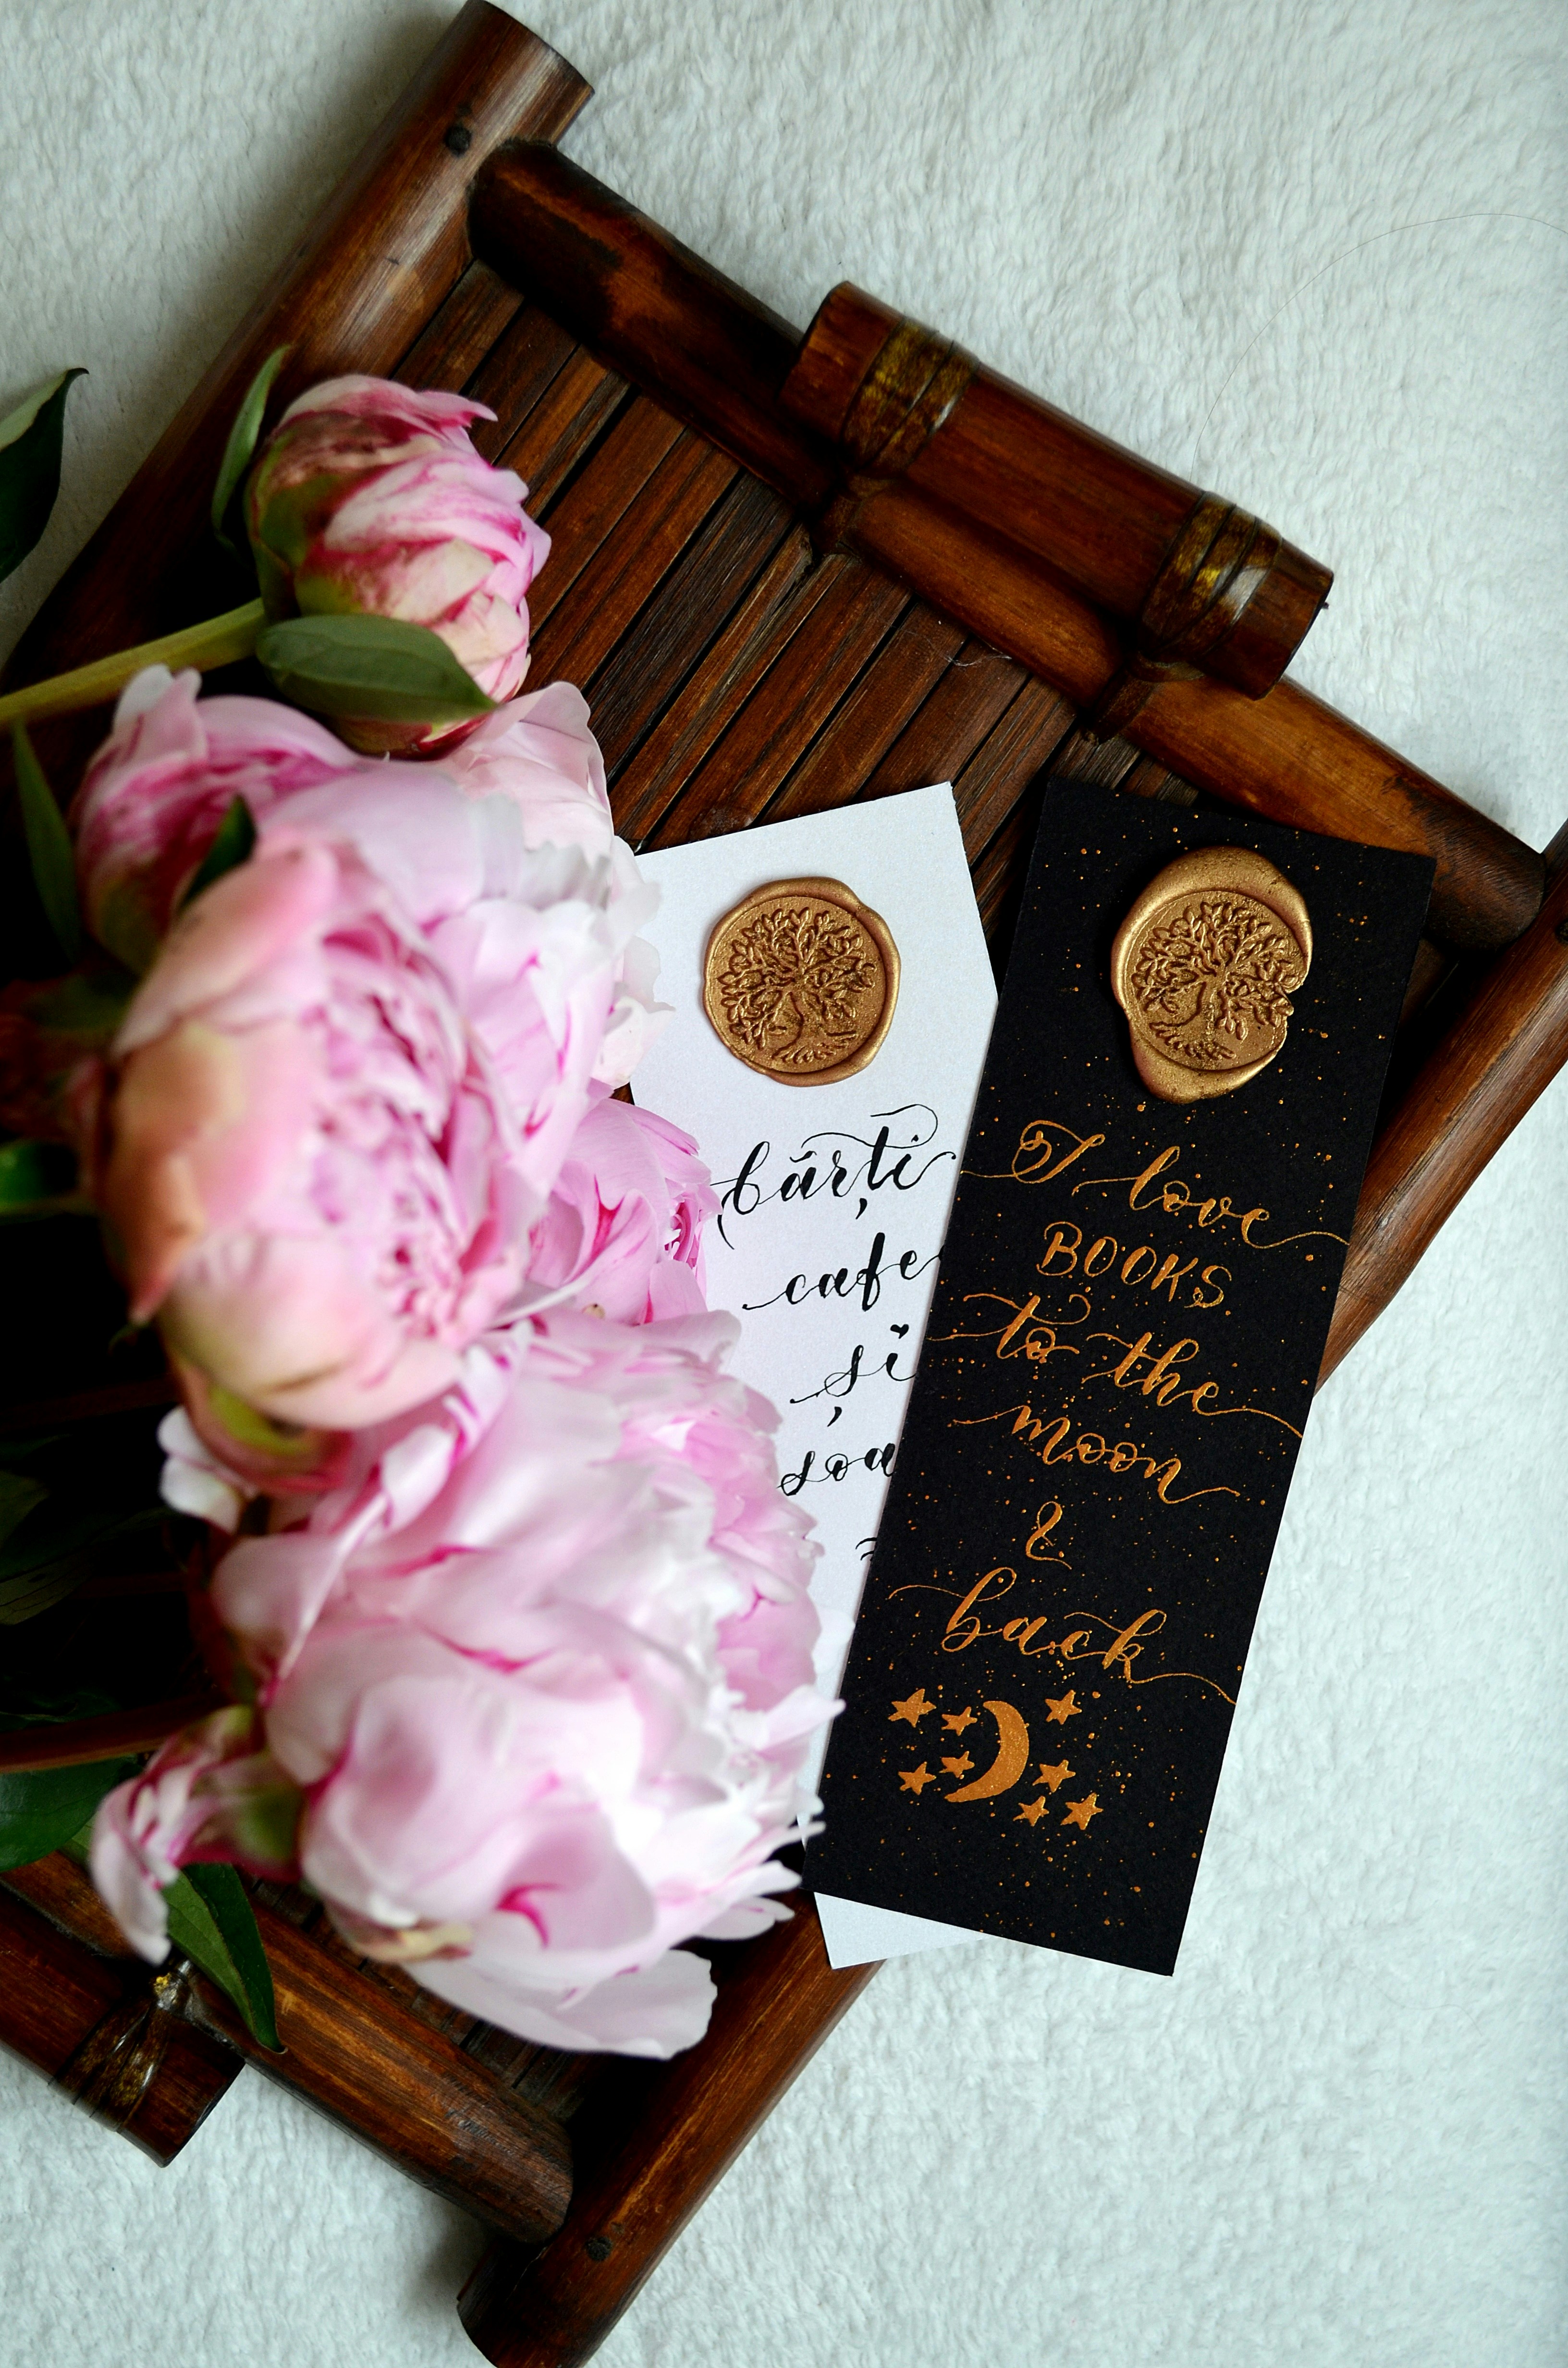 cărți
cafe
și
soa
I love
BOOKS
to the
moon
&
back